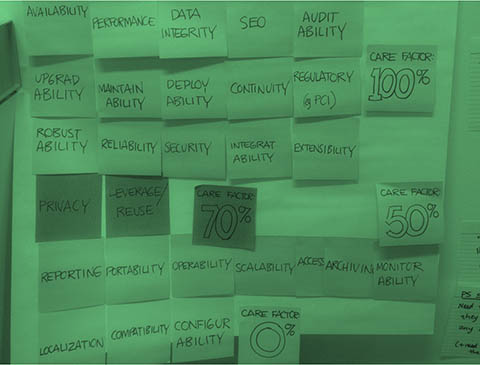 AVAILABILITY
PERFORMANCE
DATA
INTEGRITY
SEO
AUDIT
ABILITY
UPGRAD
ABILITY
MAINTAIN
ABILITY
DEPLOY
ABILITY
CONTINUITY
REGULATORY
(eg PCI)
CARE FACTOR:
100%
ROBUST
ABILITY
RELIABILITY
SECURITY
INTEGRAT
ABILITY
EXTENSIBILITY
PRIVACY
LEVERAGE/
REUSE/
CARE FACTOR:
70%
CARE FACTOR:
50%
REPORTING
PORTABILITY
OPERABILITY
SCALABILITY
ACCESS
ARCHIVIN
MONITOR
ABILITY
LOCALIZATION
COMPATIBILITY
CONFIGUR
ABILITY
CARE FACTOR:
0%
PS
they
any